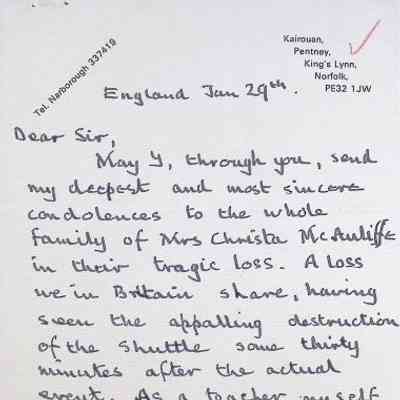 Tel. Narborough 337419
Kairouan,
Pentney,
King's Lynn,
Norfolk,
PE32 1JW
England Jan 29th.
Dear Sir,
May I, through you, send
my deepest and most sincere
condolences to the whole
family of Mrs Christa McAuliffe
in their tragic loss. A loss
we in Britain share, having
seen the appalling destruction
of the shuttle some thirty
minutes after the actual
event. As a teacher myself